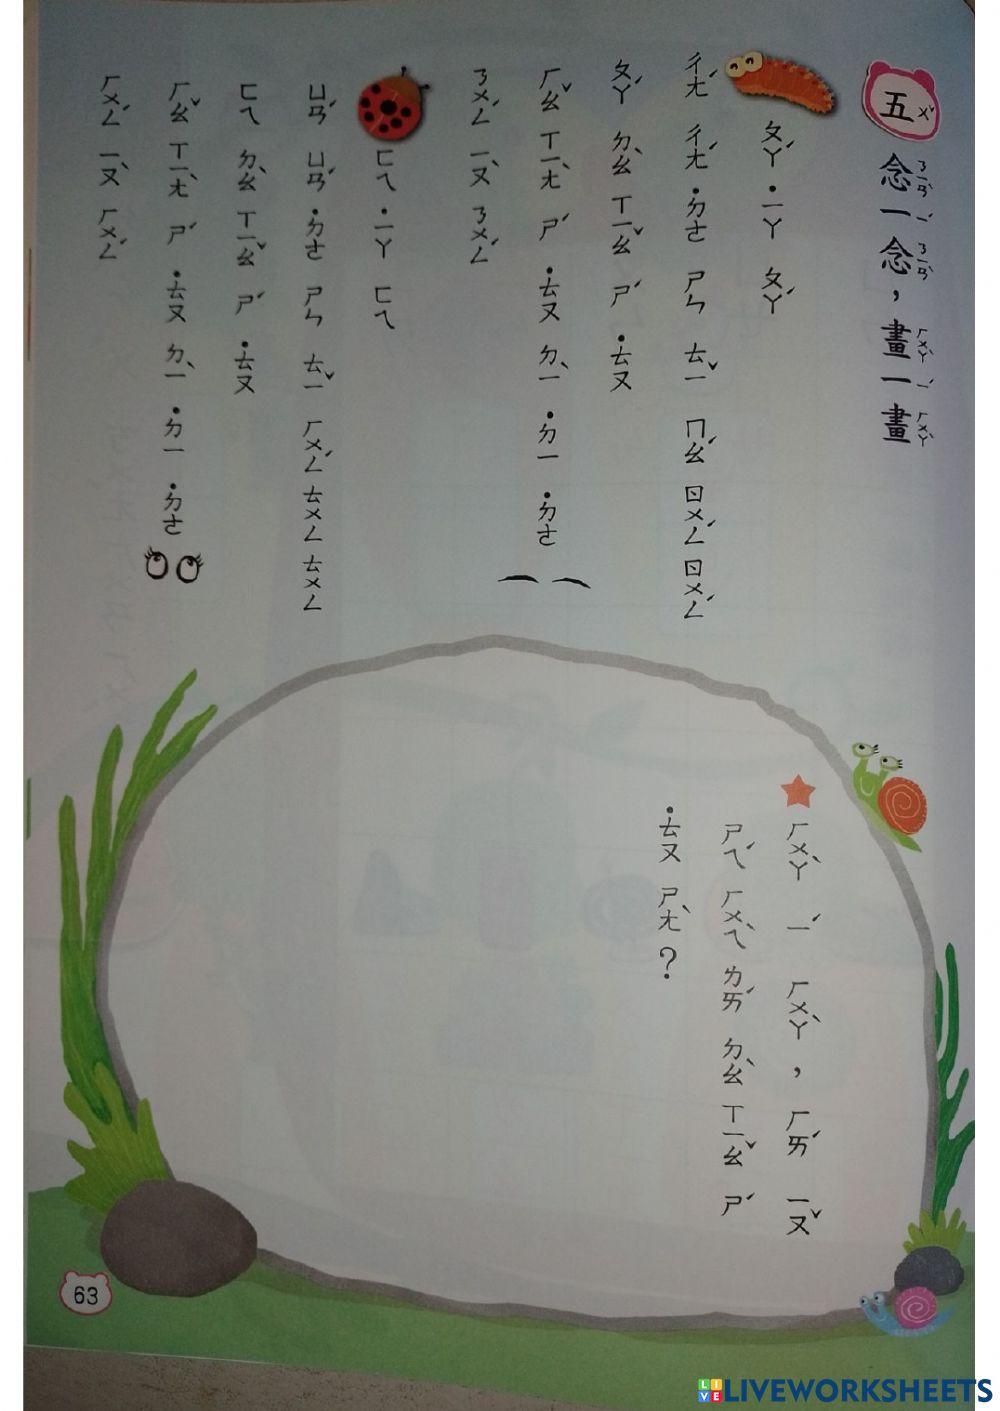 五ㄨˇ 念ㄋㄧㄢˋ一ㄧˊ念ㄋㄧㄢˋ，畫ㄏㄨㄚˋ一ㄧˊ畫ㄏㄨㄚˋ
ㄆㄚˊ ˙ㄧㄚ ㄆㄚˊ
ㄔㄤˊ ㄔㄤˊ ˙ㄉㄜ ㄕㄣ ㄊㄧˇ ㄇㄠˊ ㄖㄨㄥˊ ㄖㄨㄥˊ
ㄆㄚˊ ㄉㄠˋ ㄒㄧㄠˇ ㄕˊ ˙ㄊㄡ
ㄏㄠˇ ㄒㄧㄤˋ ㄕˊ ˙ㄊㄡ ㄉㄧˋ ˙ㄉㄧ ˙ㄉㄜ
ㄋㄨㄥˊ ㄧㄡˋ ㄋㄨㄥˊ
ㄈㄟ ˙ㄧㄚ ㄈㄟ
ㄩㄢˊ ㄩㄢˊ ˙ㄉㄜ ㄕㄣ ㄊㄧˇ ㄏㄨㄥˊ ㄊㄨㄥ ㄊㄨㄥ
ㄈㄟ ㄉㄠˋ ㄒㄧㄠˇ ㄕˊ ˙ㄊㄡ
ㄏㄠˇ ㄒㄧㄤˋ ㄕˊ ˙ㄊㄡ ㄉㄧˋ ˙ㄉㄧ ˙ㄉㄜ
ㄏㄨㄥˊ ㄧㄡˋ ㄏㄨㄥˊ
ㄏㄨㄚˋ ㄧˊ ㄏㄨㄚˋ，ㄏㄞˊ ㄧㄡˇ
ㄕㄟˊ ㄏㄨㄟˋ ㄌㄞˊ ㄉㄠˋ ㄒㄧㄠˇ ㄕˊ
˙ㄊㄡ ㄕㄤˋ？
63
LIVEWORKSHEETS